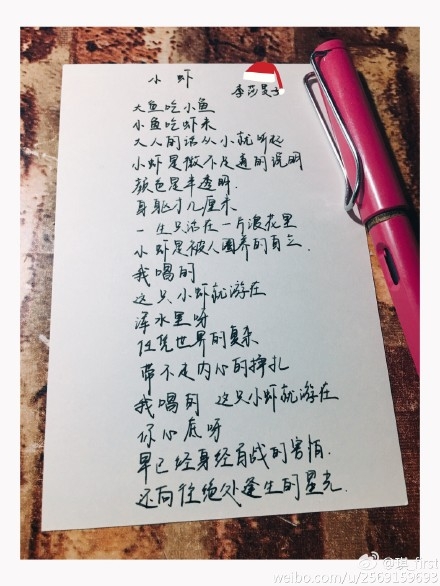 小虾
李莎旻子
大鱼吃小鱼
小鱼吃虾米
大人的话从小就听起
小虾是微不足道的说明
颜色是半透明.
身躯才几厘米
一生只活在一片浪花里
小虾是被人圈养的自立.
我唱的
这只小虾就游在
浑水里呀
任凭世界的复杂
带不走内心的挣扎
我唱的 这只小虾就游在
你心底呀
早已经身经百战的害怕.
还向往绝处逢生的星光.
@琪_first
weibo.com/u/2569159693